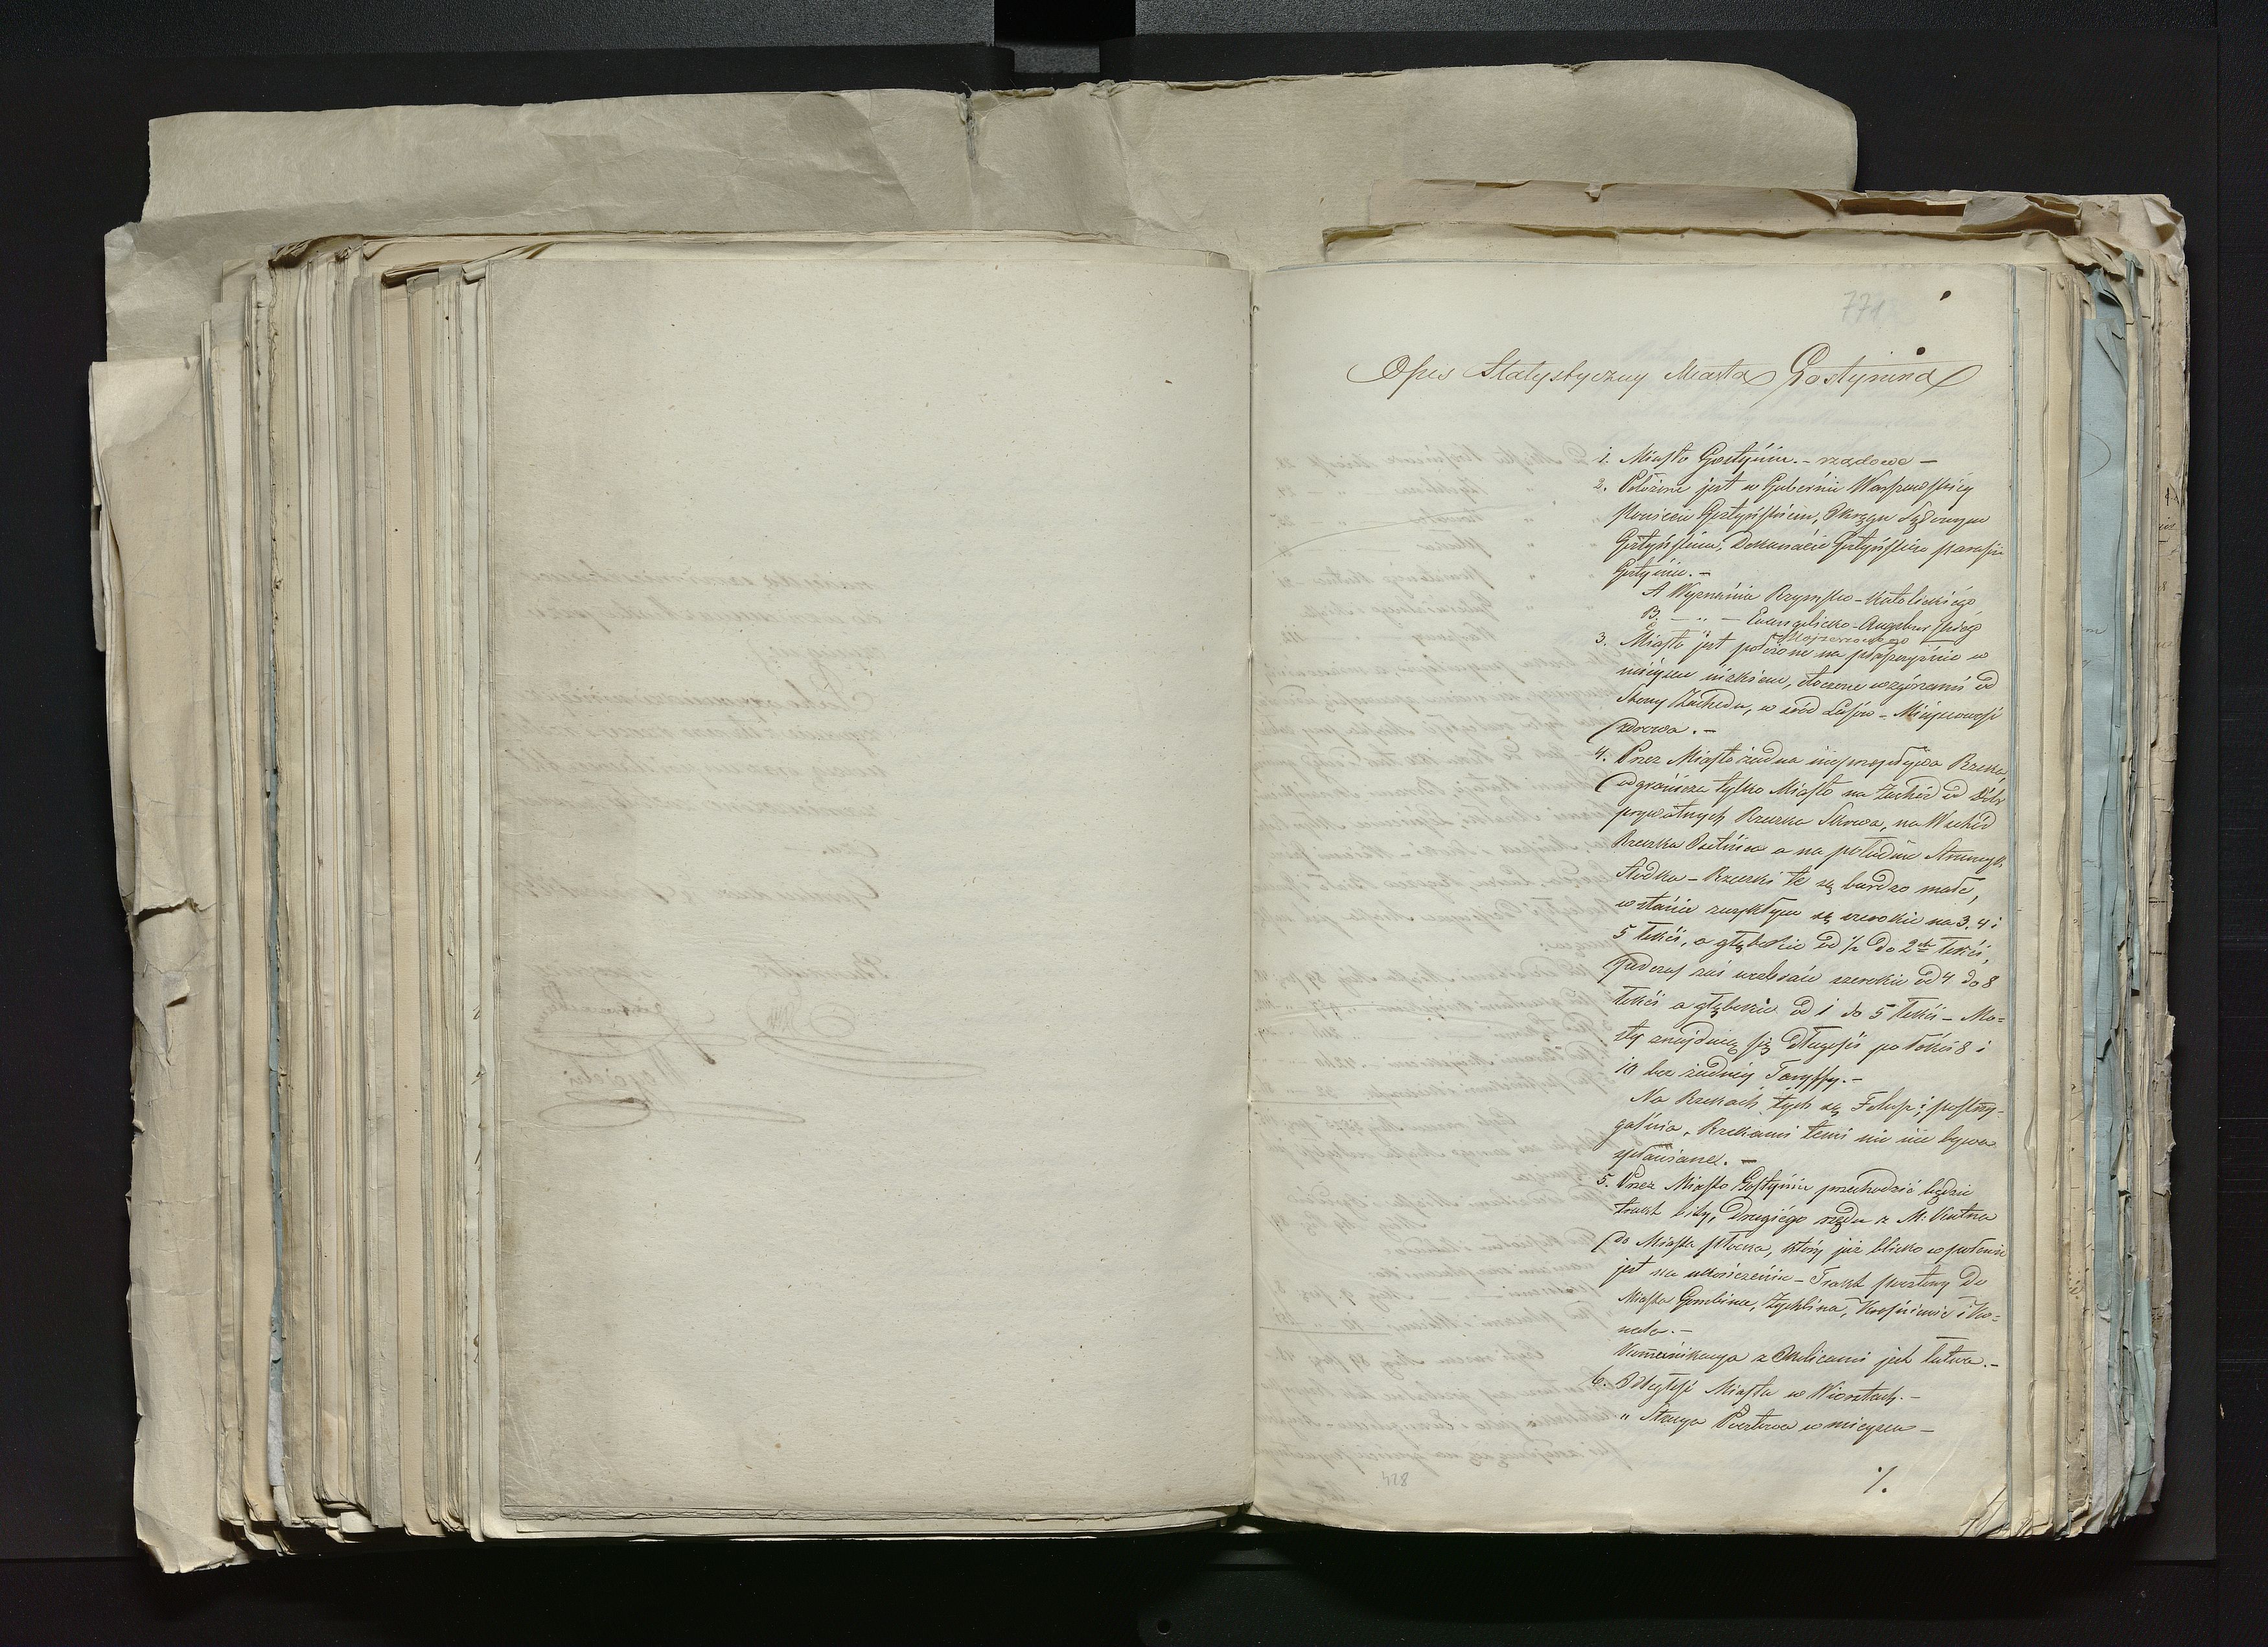 771
Opis Statystyczny Miasta Gostynina
1. Miasto Gostynin. – rządowe –
2. Położone jest w Gubernii Warszawskiéy
Powiecie Gostyńskiem, Okręgu Sądowym
Gostyńskim, Dekanacie Gostyńskim parafii
Gostynin. –
A Wyznania Rzymsko-Katolickiégo
B. – „ – Ewangelicko-Augsburskiégo
C Mojżeszowego
3. Miasto jest położone na płaszczyźnie w
miéyscu nizkiem, otoczone wzgórzami od
Strony Zachodu, w śród Lasów – Miéyscowość
zdrowa. –
4. Przez Miasto żadna nieprzepływa Rzeka,
odgranicza tylko Miasto na Zachód od Dóbr
prywatnych Rzeczka Skrwa, na Wschód
Rzeczka Osetnica a na południe Strumyk
Rzeczki te są bardzo małe,
w stanie zwykłym są szerokie na 3, 4 i
5 łokci, a głębokie od ½ do 2ch łokci,
podczas zaś wezbrań szerokie od 4 do 8
łokci a głębokie od 1 do 5 łokci – Mo=
sty znajdują się długości po łokci 8 i
10 bez żadnéy Taryffy. –
Na Rzekach tych są Folusz i postrzy-
galnia, Rzekami temi nic nie bywa
spławiane. –
5. Przez Miasto Gostynin przechodzić będzie
trakt bity, drugiégo rzędu z M: Kutna
do Miasta Płocka, który już blisko w połowie
jest na ukończeniu – Trakt pocztowy do
Miasta Gombina, Żychlina, Krośniewic i Ko=
wala. –
Kom̄unikacya z Okolicami jest łatwa. –
6. Odległość Miasta w Wiorstach. –
„ Stacya Pocztowa w mieyscu –
./.
428